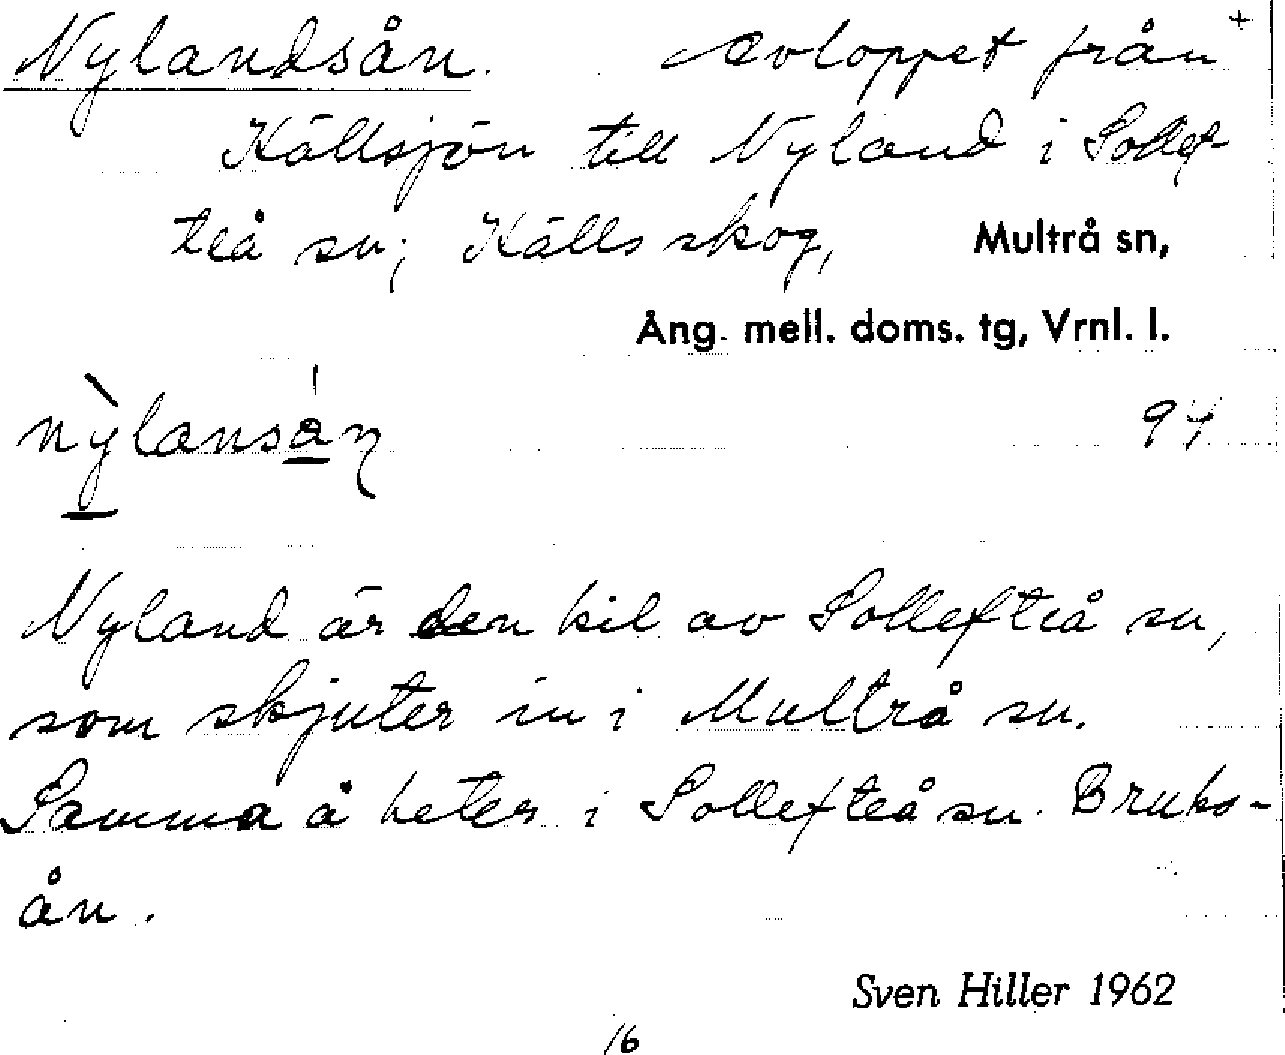 Nylandsån. avloppet från +
Källsjön till Nyland i Sollef
teå sn; Källs skog, Multrå sn,
Ång. mell. doms. tg, Vrnl. l.
nỳlansȧ́n 94
Nyland är den kil av Sollefteå sn,
som skjuter in i Multrå sn.
Samma å heter i Sollefteå sn. Bruks-
ån.
Sven Hiller 1962
16